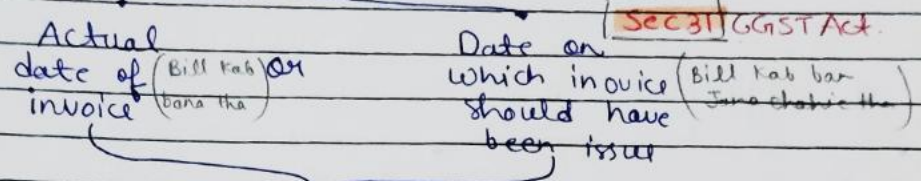 Sec 31 CGST Act.
Actual date of invoice (Bill kab bana tha) or
Date on which inouice should have been issue (Bill kab ban Jana chahie tha)